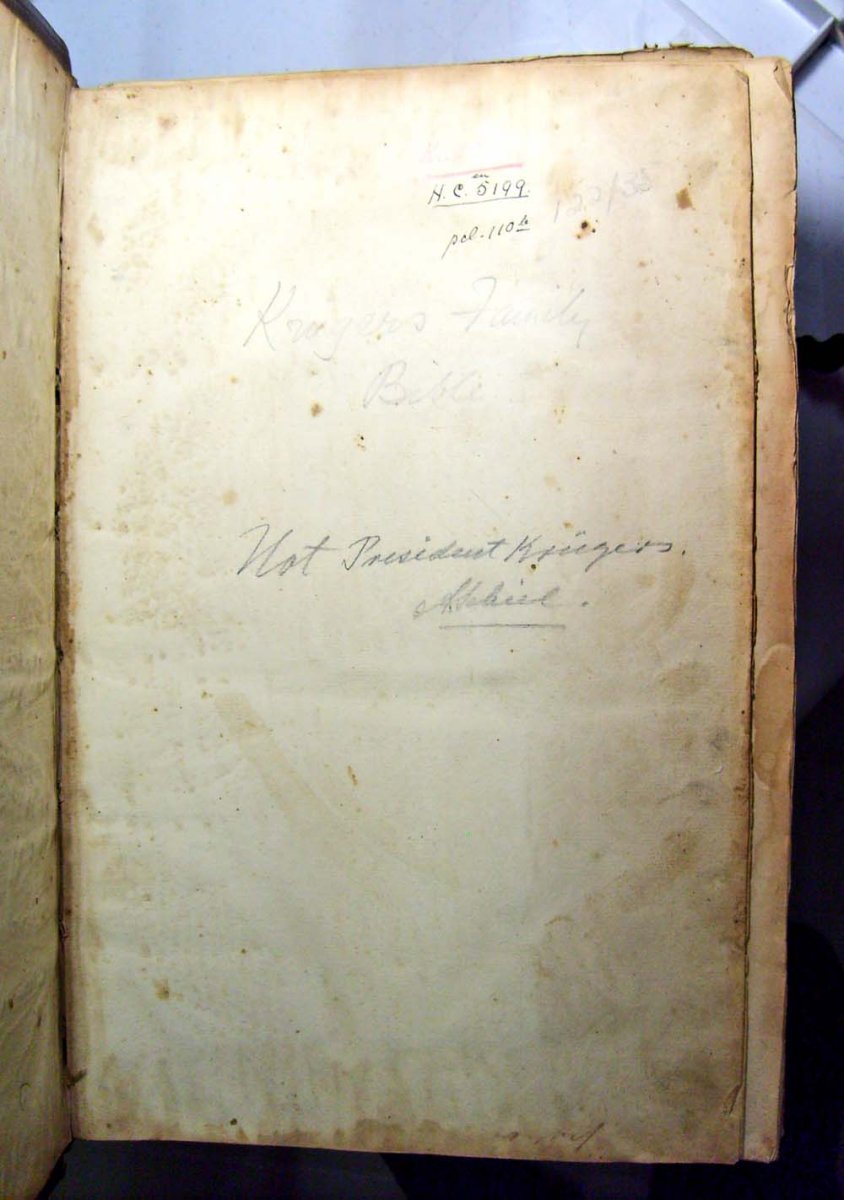 H.C. en 5199.
pcl-110
122/35
Krugers Family
Bible
Not President Krügers.